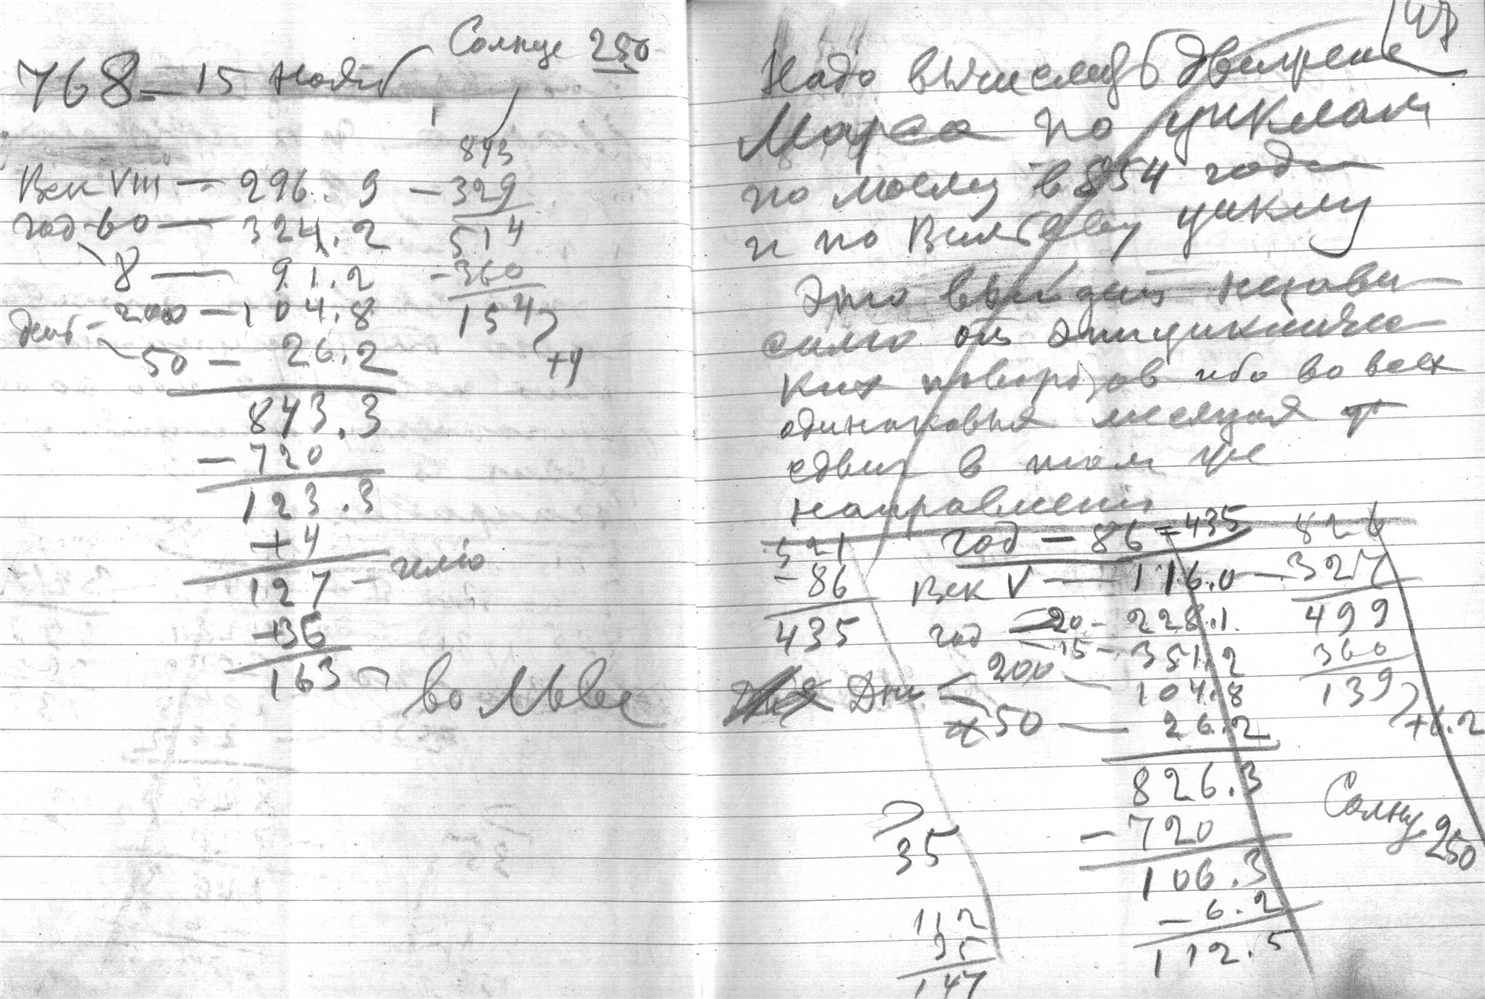 Солнце 250
768 – 15 нояб
843
Век VIII — 296.9 – 329
год 60 — 324.2 514
8 — 91.2 – 360
200 — 104.8 154
+4
50 — 26.2
843.3
– 720
123.3
+4
127 –
+36
163
во Льве
Надо вычислить
Марса по циклам
по моему в 854 года
и по циклу
Это выйдет незави
симо от эпициклическ
ких поворотов ибо во всех
одинаковых месяцах
сдвиг в том же
направлении
521 год – 86 = 435 826
– 86 Век V — 116.0 — 327
435 год 20 – 228.1 499
15 – 351.2 360
Дни 200 104.8 139
50 — 26.2 +6.2
826.3
Солнц 250
35 – 720
106.3
112 – 6.2
35 112.5
147